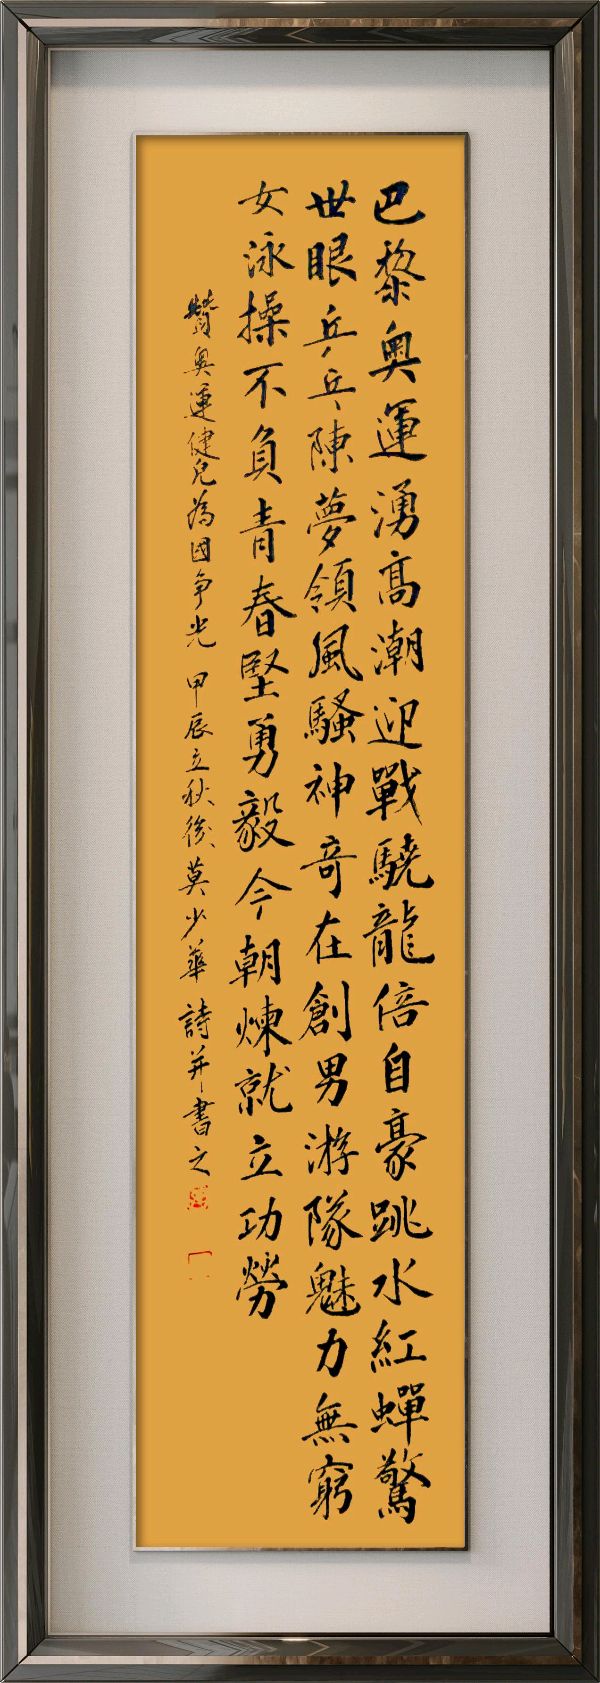 巴黎奧運湧高潮迎戰驍龍倍自豪跳水紅蟬驚
世眼乒乓陳夢領風騷神奇在創男游隊魅力無窮
女泳操不負青春堅勇毅今朝煉就立功勞
贊奧運健兒為國爭光甲辰立秋後莫少華詩并書之